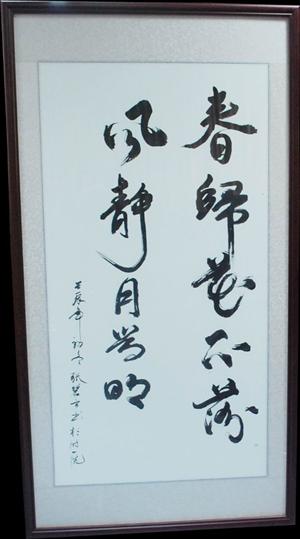 春歸花不落
風靜月常明
壬辰年初冬